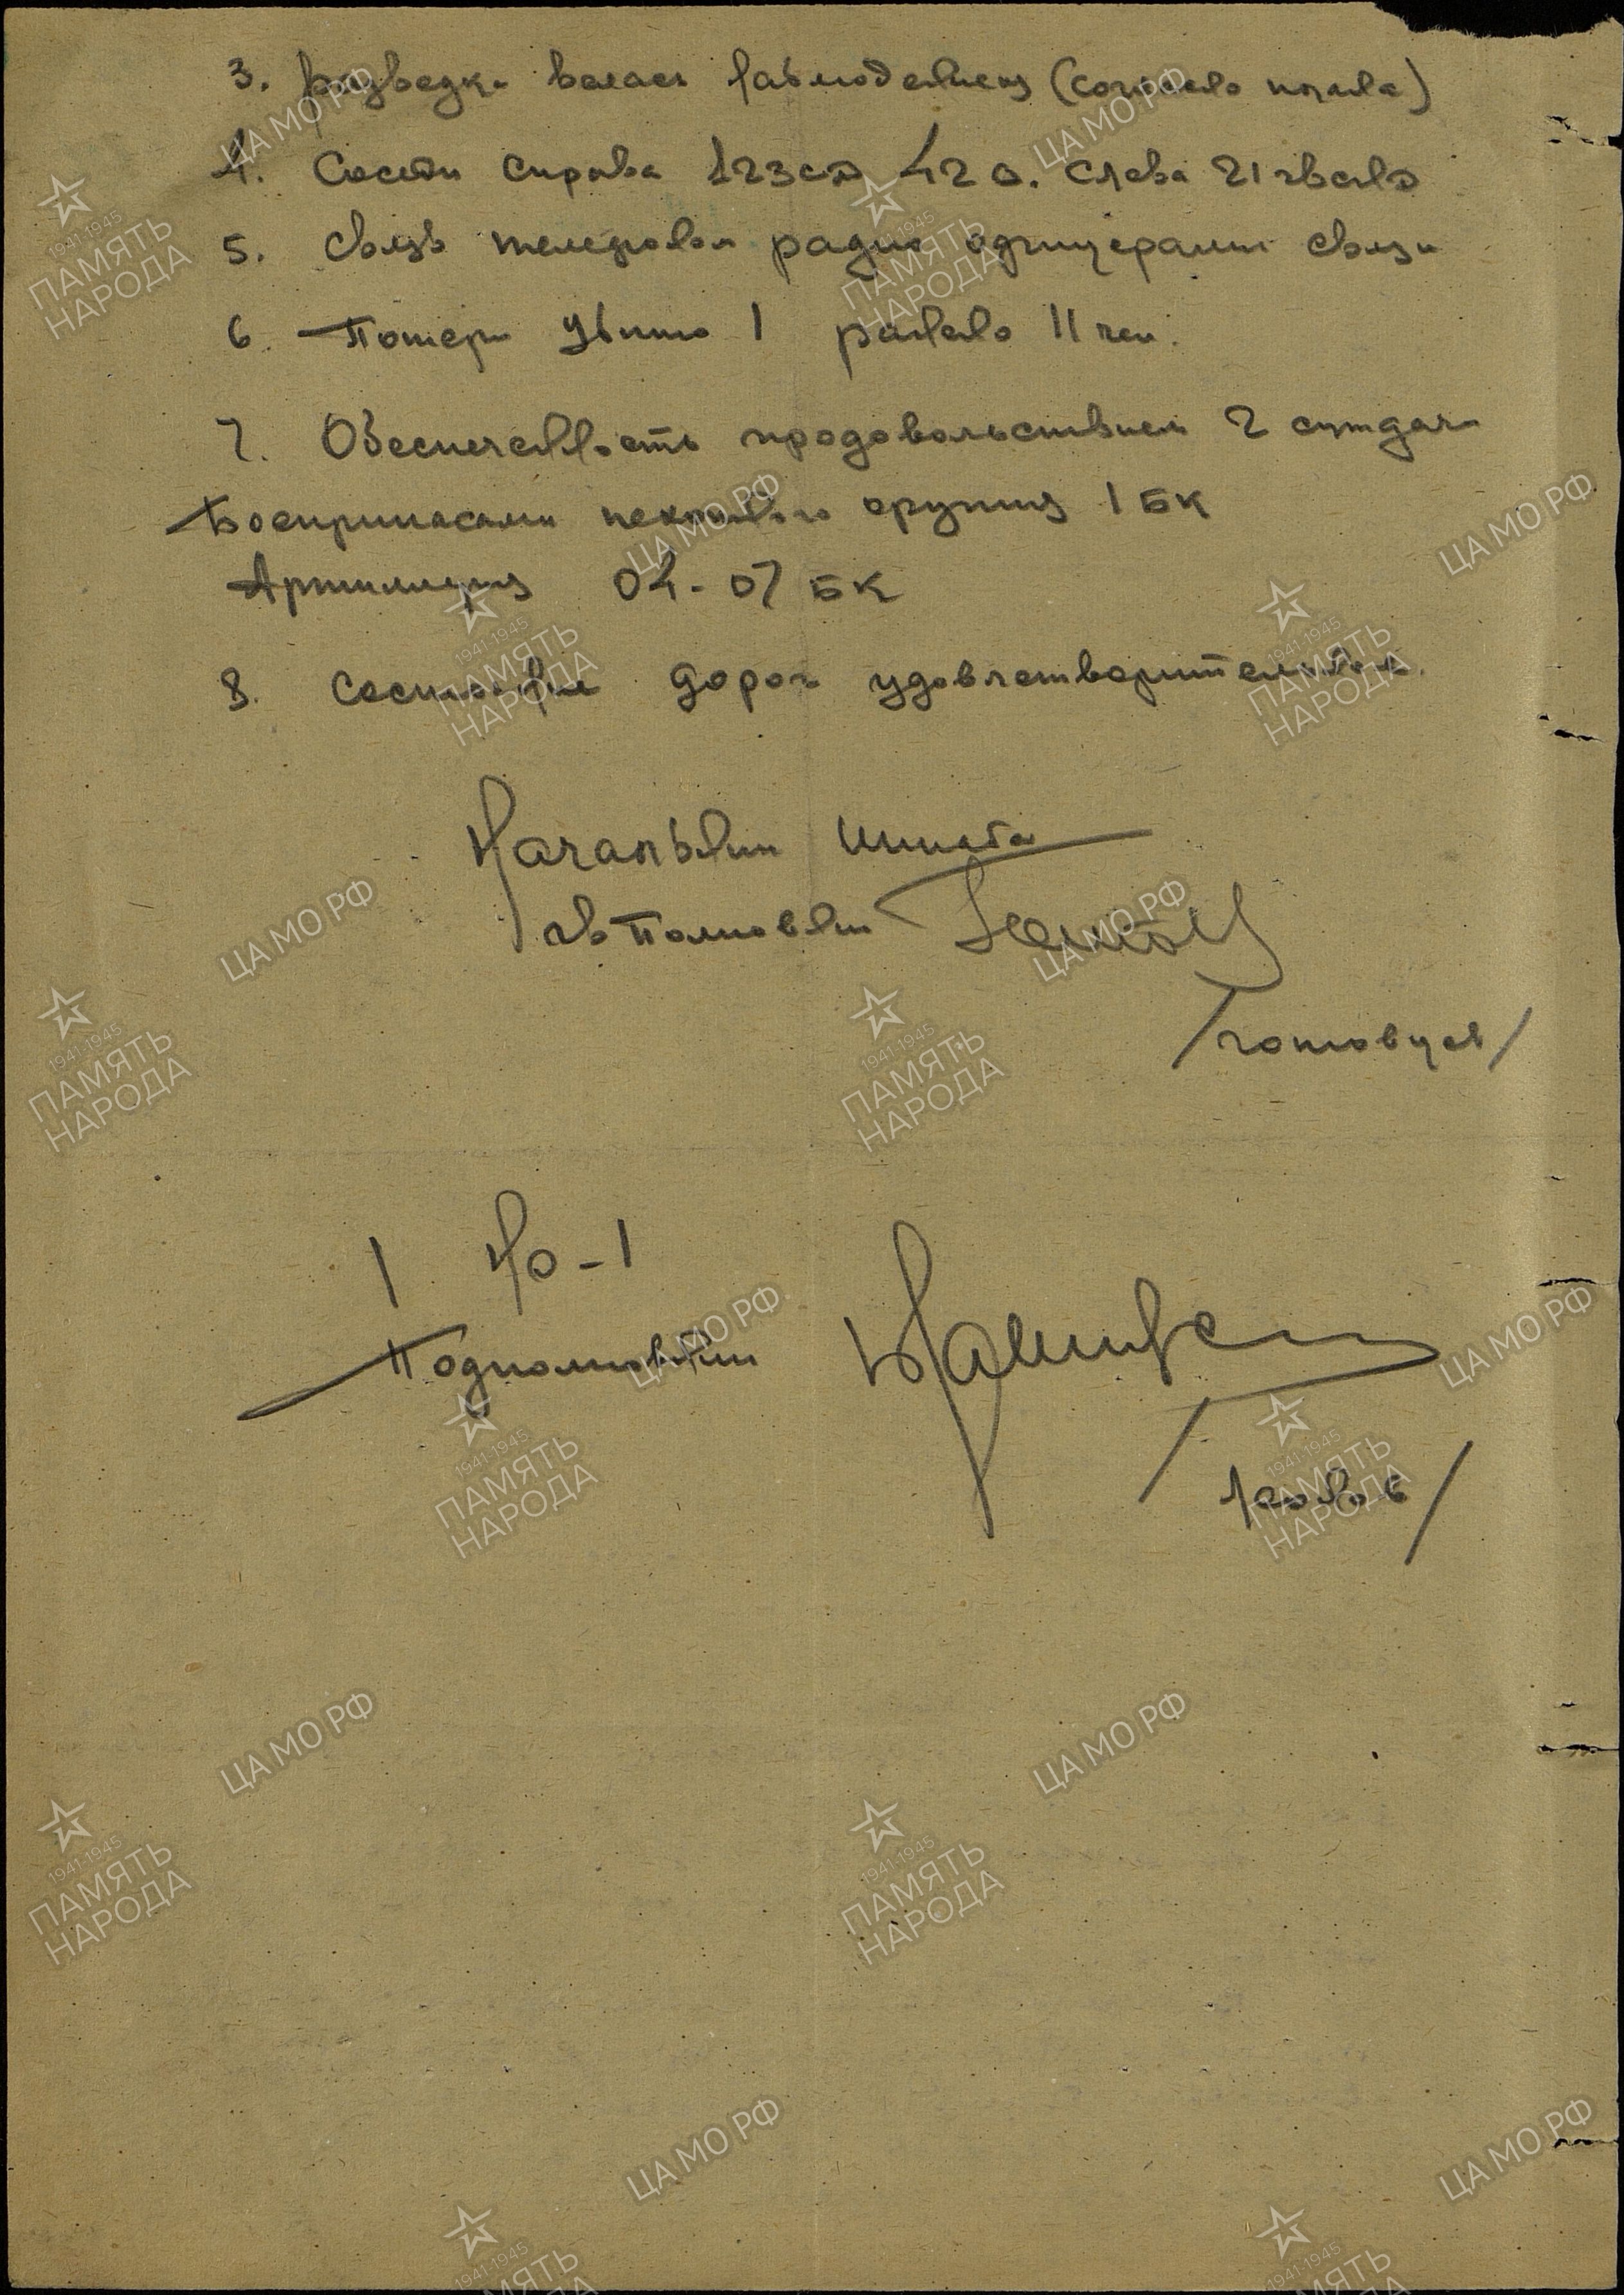 3. Разведка велась наблюдением (согласно плана)
4. Соседи справа 123 сд 42 а. Слева 21 гв сд
5. Связь телефоном радио офицерами связи
6. Потери убито 1 ранено 11 чел.
7. Обеспеченность продовольствием 2 сутдачи
Боеприпасами пехотного оружия 1 БК
Артиллерия 04-07 БК
8. Состояние дорог удовлетворительное.
Начальник штаба
гв Полковник
/Готовцев/
НО-1
Подполковник